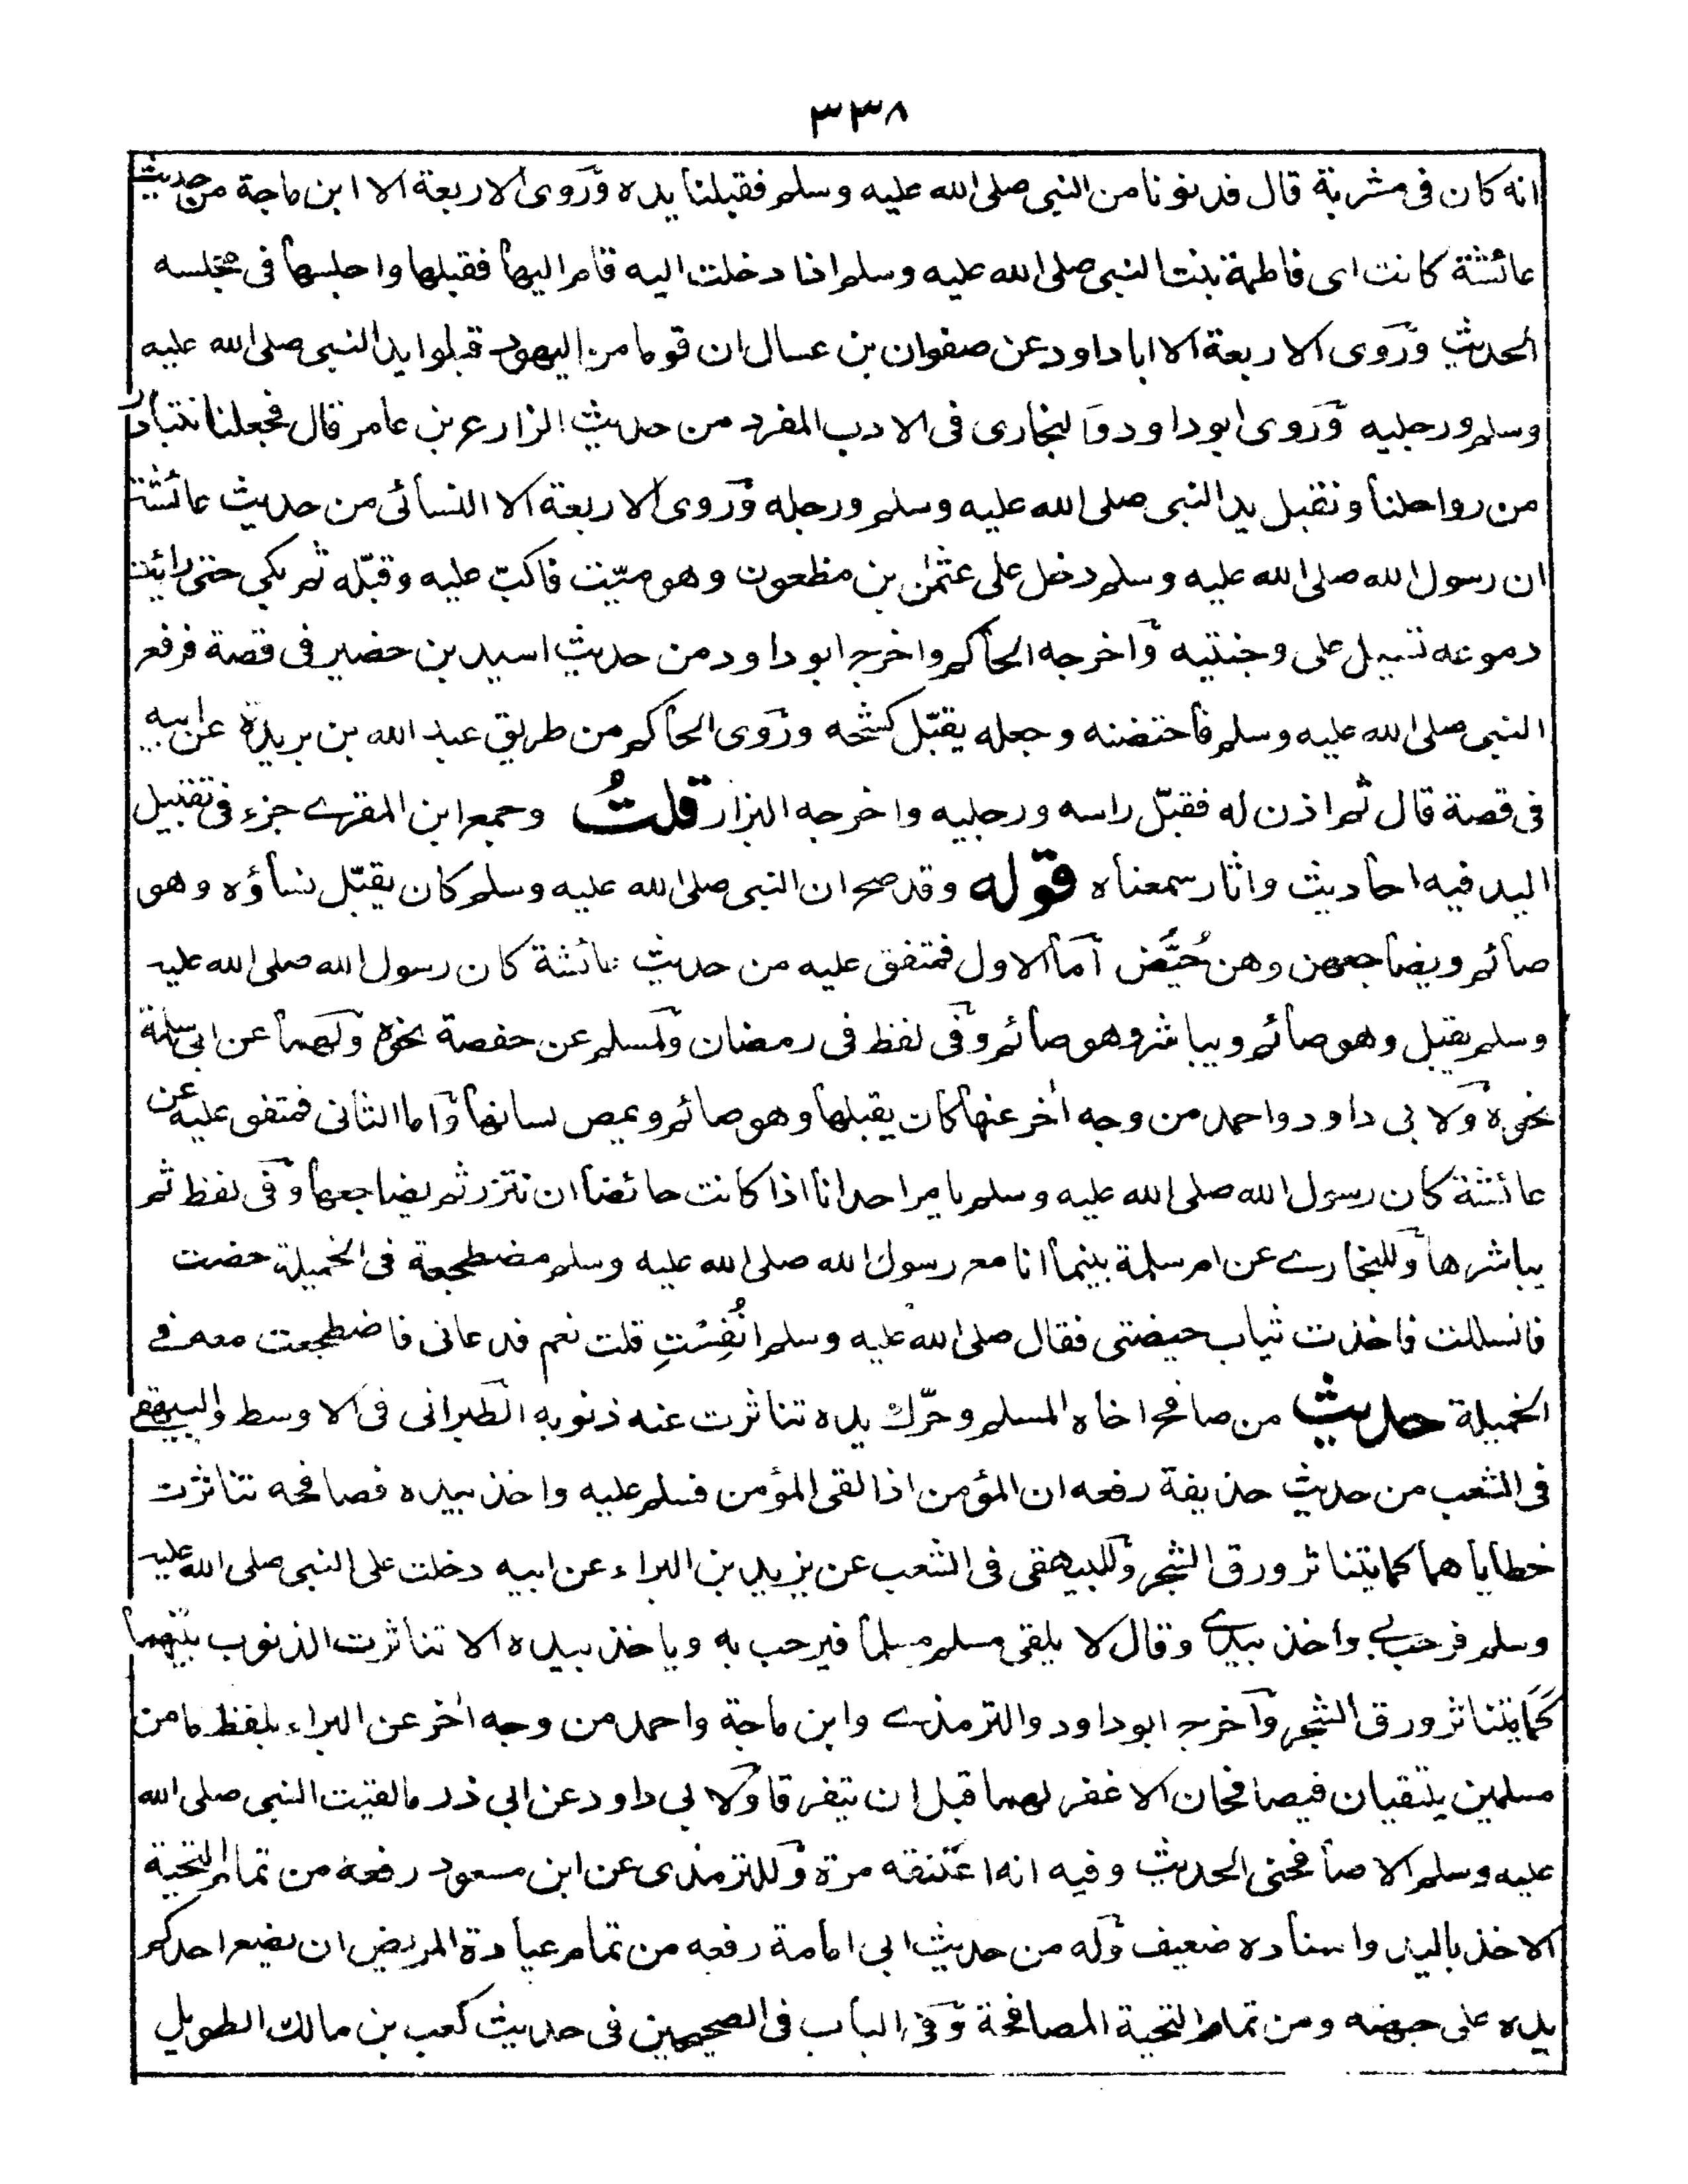 ٣٣٨
انه كان فى مشربة قال فدنونا من النبى صلى الله عليه وسلم فقبلنا يده وروى الاربعة الا ابن ماجة من حديث
عائشة كانت اى فاطمة بنت النبى صلى الله عليه وسلم اذا دخلت اليه قام اليها فقبلها واجلسها فى مجلسه
الحديث وروى الاربعة الا ابا داود عن صفوان بن عسال ان قوما من اليهود قبلوا يد النبى صلى الله عليه
وسلم ورجليه وروى ابو داود والبخارى فى الادب المفرد من حديث الزارع بن عامر قال فجعلنا نتبادر
من رواحلنا ونقبل يد النبى صلى الله عليه وسلم ورجله وروى الاربعة الا النسائى من حديث عائشة
ان رسول الله صلى الله عليه وسلم دخل على عثمٰن بن مظعون وهو ميّت فاكبّ عليه وقبّله ثم بكى حتى رائيت
دموعه تسيل على وجنتيه واخرجه الحاكم واخرجه ابو داود من حديث اسيد بن حضير فى قصة فرفع
النبى صلى الله عليه وسلم فاحتضنه وجعله يقبّل كشحه وروى الحاكم من طريق عبد الله بن بريدة عن ابيه
فى قصة قال ثم اذن له فقبّل راسه ورجليه واخرجه البزار قلتُ وجمع ابن المقرے جزء فى تقبيل
اليد فيه احاديث واثار سمعناه قوله وقد صح ان النبى صلى الله عليه وسلم كان يقبّل نساؤه وهو
صائم ويضاجعهن وهن حُيَّض اما الاول فمتفق عليه من حديث عائشة كان رسول الله صلى الله عليه
وسلم يقبل وهو صائم ويباشر وهو صائم وفى لفظ فى رمضان ولمسلم عن حفصة نحوه ولهما عن ابى سلمة
نحوه ولابى داود واحمد من وجه اٰخر عنها كان يقبلها وهو صائم ويمص لسانها واما الثانى فمتفق عليه عن
عائشة كان رسول الله صلى الله عليه وسلم يامر احدانا اذا كانت حائضا ان تتزر ثم يضاجعها وفى لفظ ثم
يباشرها وللبخارے عن ام سلمة بينما انا مع رسول الله صلى الله عليه وسلم مضطجعة فى الخميلة حضت
فانسللت فاخذت ثياب حيضتى فقال صلى الله عليه وسلم انُفِسْتِ قلت نعم فدعانى فاضطجعت معه فے
الخميلة حديث من صافح اخاه المسلم وحرّك يده تناثرت عنه ذنوبه الطبرانى فى الاوسط والبيهقے
فى الشعب من حديث حذيفة رفعه ان المؤمن اذا لقى المؤمن فسلم عليه واخذ بيده فصافحه تناثرت
خطاياهما كما يتناثر ورق الشجر وللبيهقى فى الشعب عن يزيد بن البراء عن ابيه دخلت على النبى صلى الله عليه
وسلم فرحب بے واخذ بيدے وقال لا يلقى مسلم مسلما فيرحب به وياخذ بيده الا تناثرت الذنوب بينهما
كما يتناثر ورق الشجر واخرجه ابو داود والترمذے وابن ماجة واحمد من وجه اٰخر عن البراء بلفظ ما من
مسلمين يلتقيان فيصافحان الا غفر لهما قبل ان يتفرقا ولابى داود عن ابى ذر ما لقيت النبى صلى الله
عليه وسلم الا صافحنى الحديث وفيه انه اعتنقه مرة وللترمذى عن ابن مسعود رفعه من تمام التحية
الاخذ باليد واسناده ضعيف وله من حديث ابى امامة رفعه من تمام عيادة المريض ان يضع احدكم
يده على جبهته ومن تمام التحية المصافحة وفى الباب فى الصحيحين فى حديث كعب بن مالك الطويل